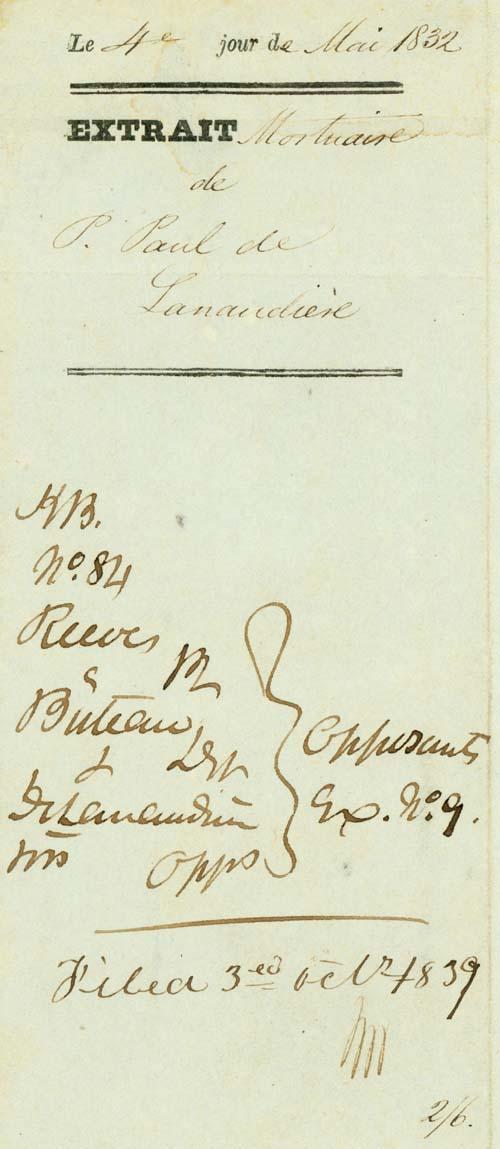 Le 4e jour de Mai 1832
EXTRAIT Mortuaire
de
P. Paul de
Lanaudière
KB.
No. 84
Reeves
&
Buteau
&
DeLanaudière
Opps
Opposants
Ex. No. 9.
Filed 3ed Octr 1839
2/6.